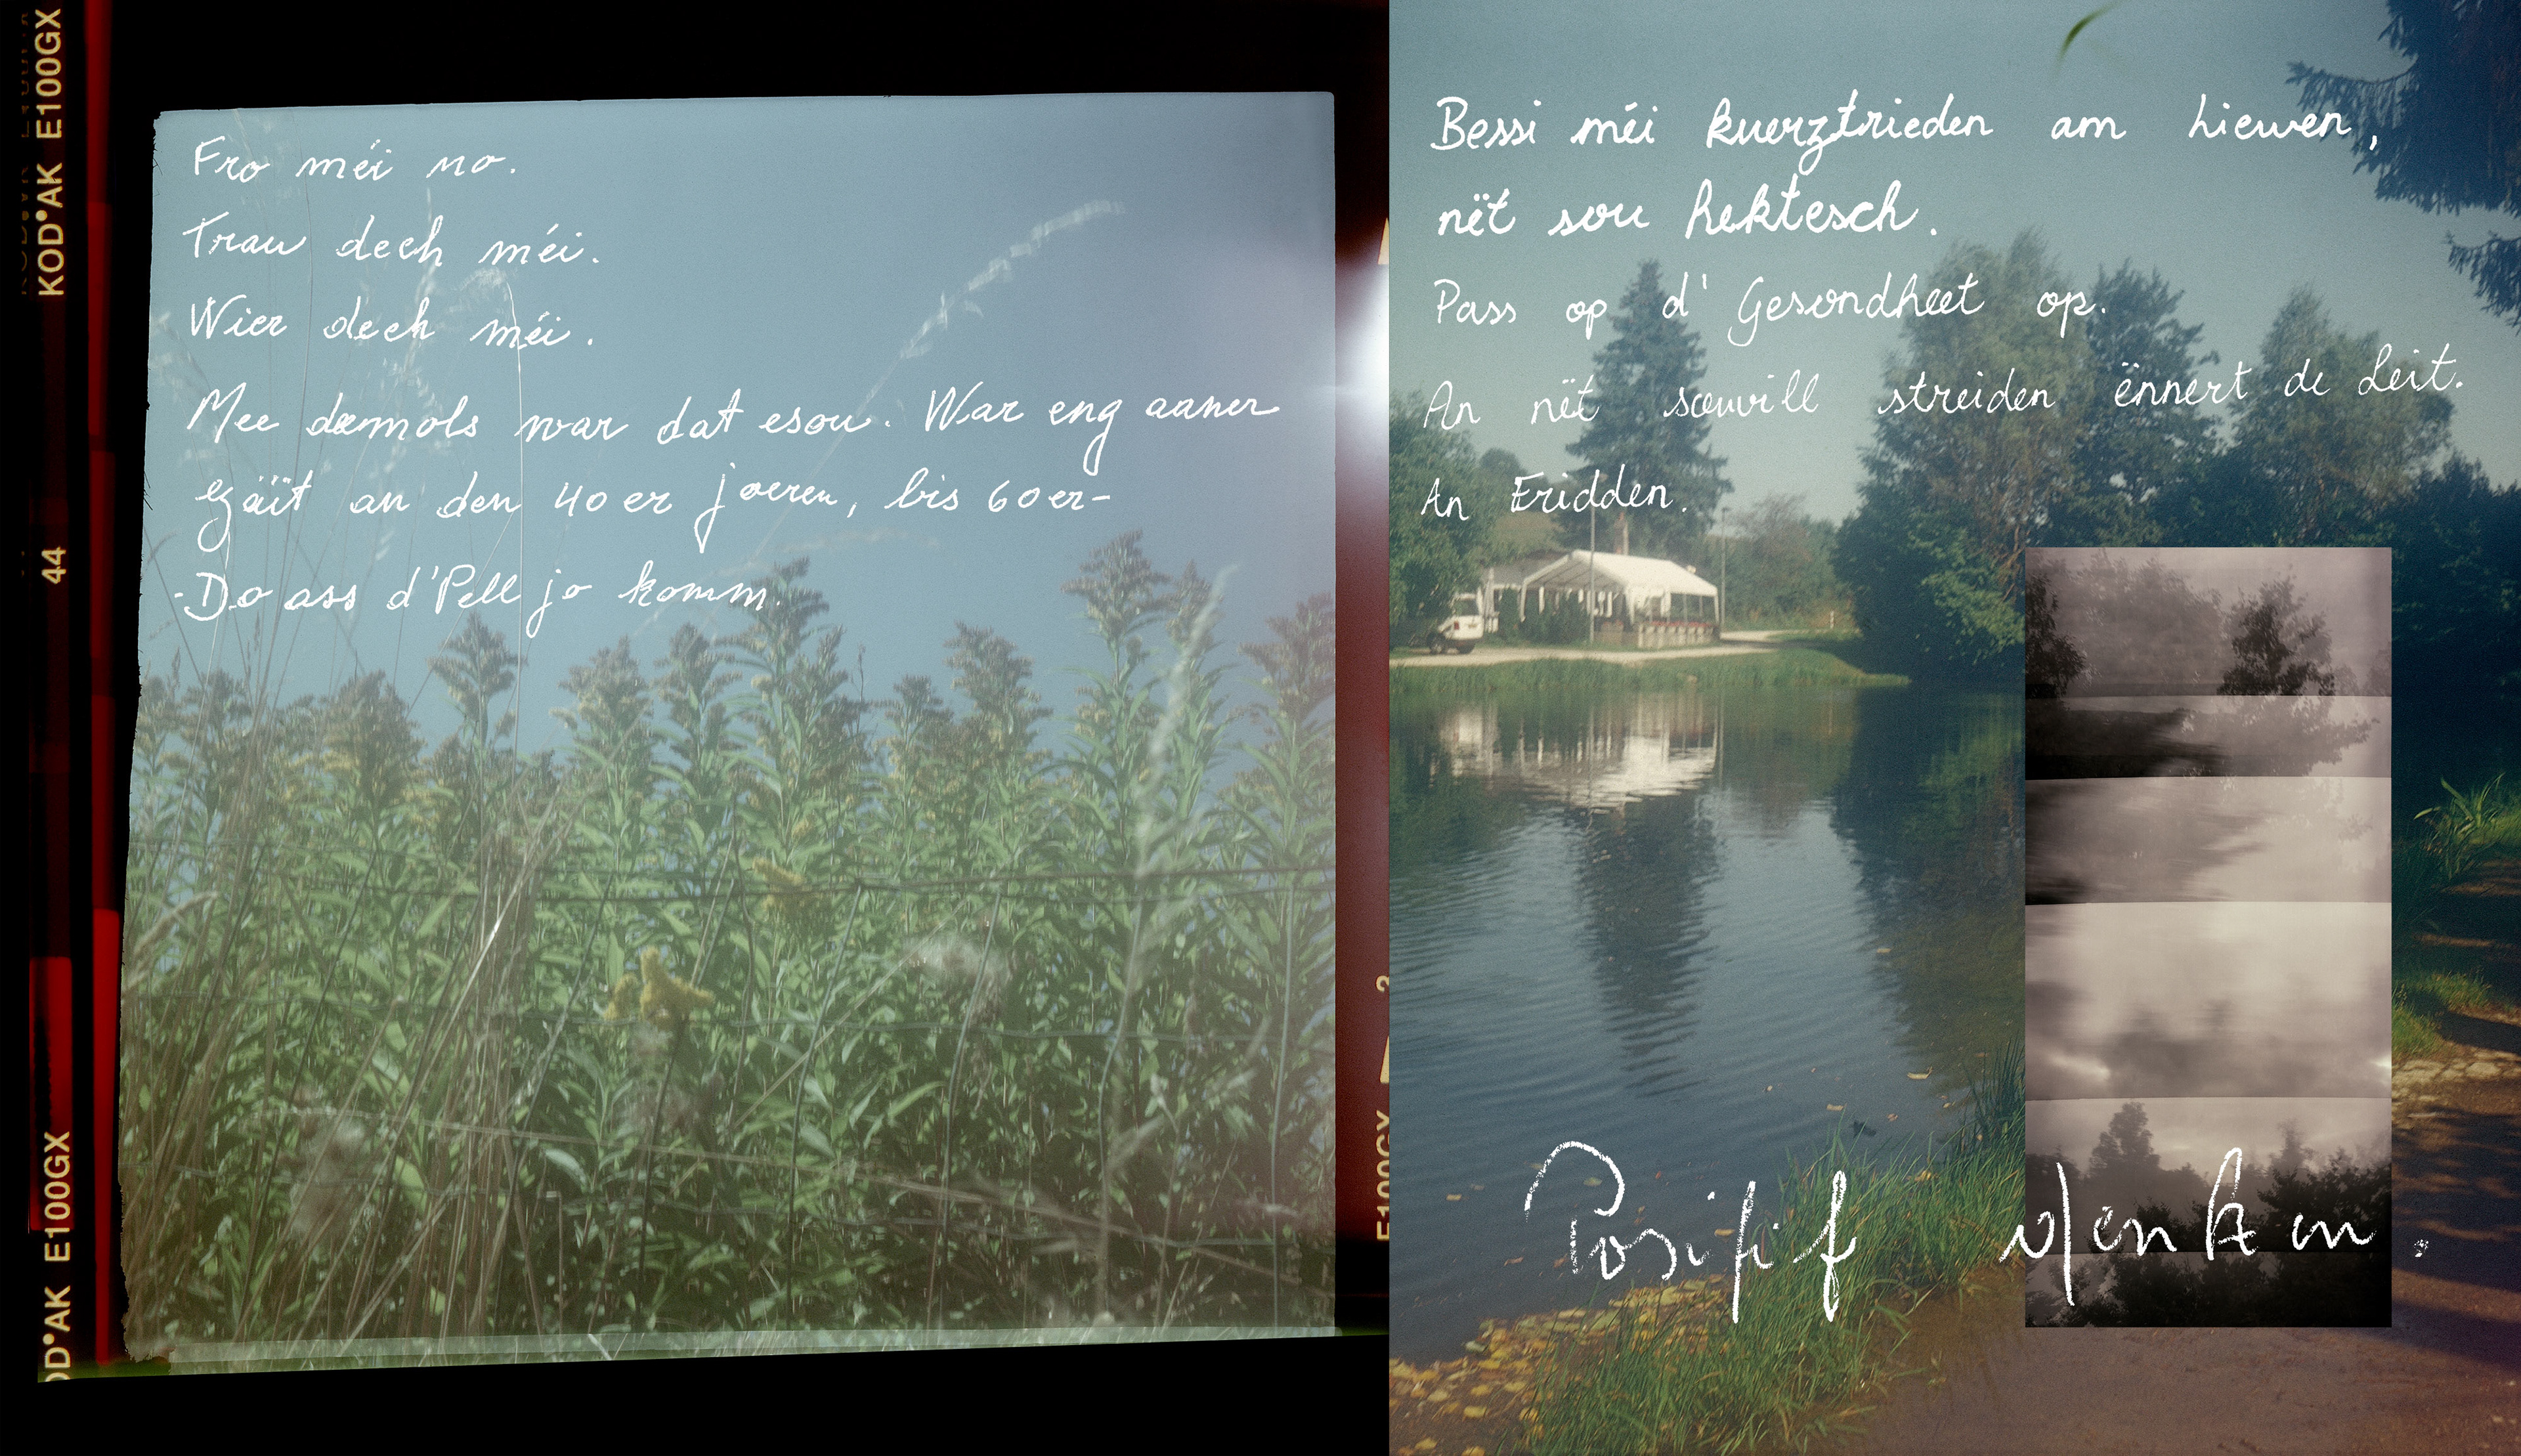 KOD*AK E100GX
44
OD*AK E100GX
Fro méi no.
Trau dech méi.
Wier dech méi.
Mee daemols war dat esou. War eng aaner
zäit an den 40er joeren, bis 60er-
-Do ass d'Pell jo komm.
3
E100GX
Bessi méi kuerztrieden am Liewen,
nët sou hektesch.
Pass op d'Gesondheet op.
An nët sœuvill streiden ënnert de Leit.
An Fridden.
Positif denken.